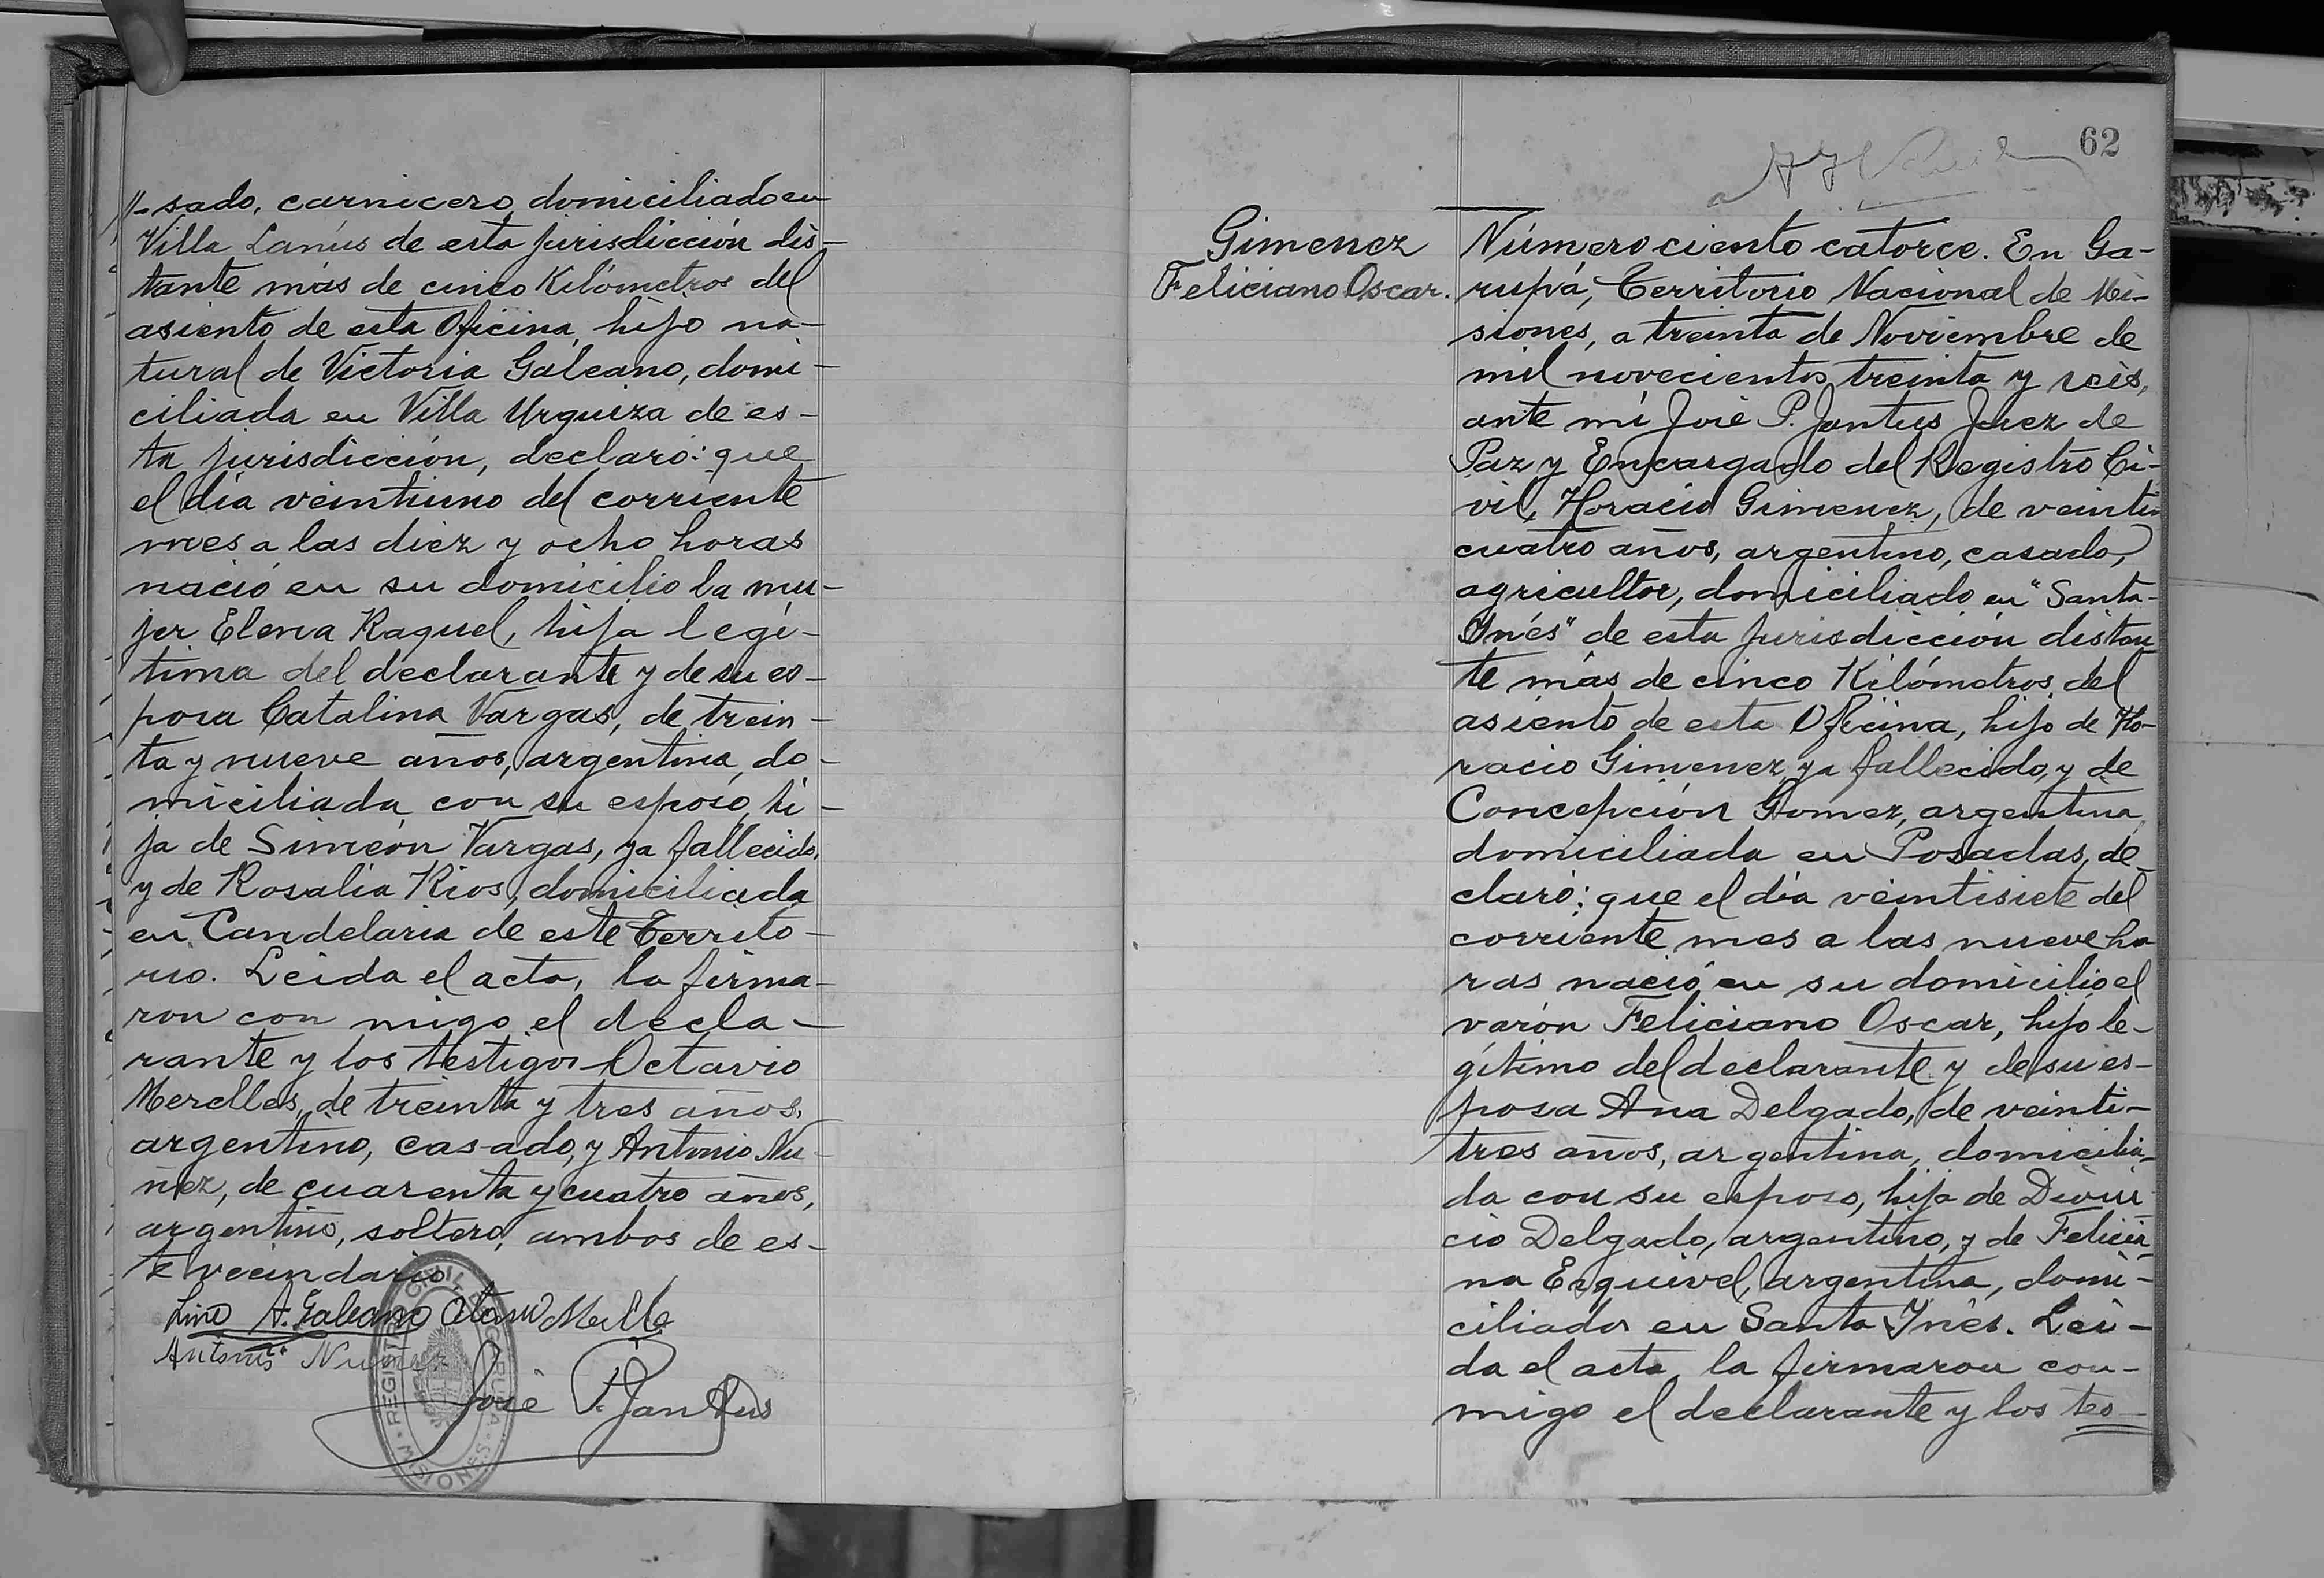 //- sado, carnicero domiciliado en
Villa Lanús de esta jurisdicción dis-
tante más de cinco Kilómetros del
asiento de esta Oficina, hijo na-
tural de Victoria Galeano, domi-
ciliada en Villa Urquiza de es-
ta jurisdicción, declaró: que
el día veintiuno del corriente
mes a las diez y ocho horas
nació en su domicilio la mu-
jer Elena Raquel, hija legí-
tima del declarante y de su es-
posa Catalina Vargas, de trein-
ta y nueve años, argentina, do-
miciliada con su esposo, hi-
ja de Simeón Vargas, ya fallecido,
y de Rosalía Rios, domiciliada
en Candelaria de este Territo-
rio. Leida el acta, la firma-
ron con migo el decla-
rante y los testigos Octavio
Merelles, de treinta y tres años,
argentino, casado, y Antonio Nu-
ñez, de cuarenta y cuatro años,
argentino, soltero, ambos de es-
te vecindario
Lino A. Galeano
Antonio Nuñez
José P. Jantus
REGISTRO CIVIL DE GARUPA - MISIONES
62
Gimenez
Feliciano Oscar.
Número ciento catorce. En Ga-
rupá, Territorio Nacional de Mi-
siones, a treinta de Noviembre de
mil novecientos treinta y seis,
ante mí José P. Jantus Juez de
Paz y Encargado del Registro Ci-
vil, Horacio Gimenez, de veinti-
cuatro años, argentino, casado,
agricultor, domiciliado en "Santa-
Ynés" de esta jurisdicción distan-
te más de cinco Kilómetros del
asiento de esta Oficina, hijo de Ho-
racio Gimenez, ya fallecido, y de
Concepción Gomez, argentina,
domiciliada en Posadas, de-
claró: que el día veintisiete del
corriente mes a las nueve ho-
ras nació en su domicilio el
varón Feliciano Oscar, hijo le-
gítimo del declarante y de su es-
posa Ana Delgado, de veinti-
tres años, argentina, domicilia-
da con su esposo, hija de Dioni-
cio Delgado, argentino, y de Felicia-
na Esquivel, argentina, domi-
ciliados en Santa Ynés. Lei-
da el acta, la firmaron con-
migo el declarante y los tes-